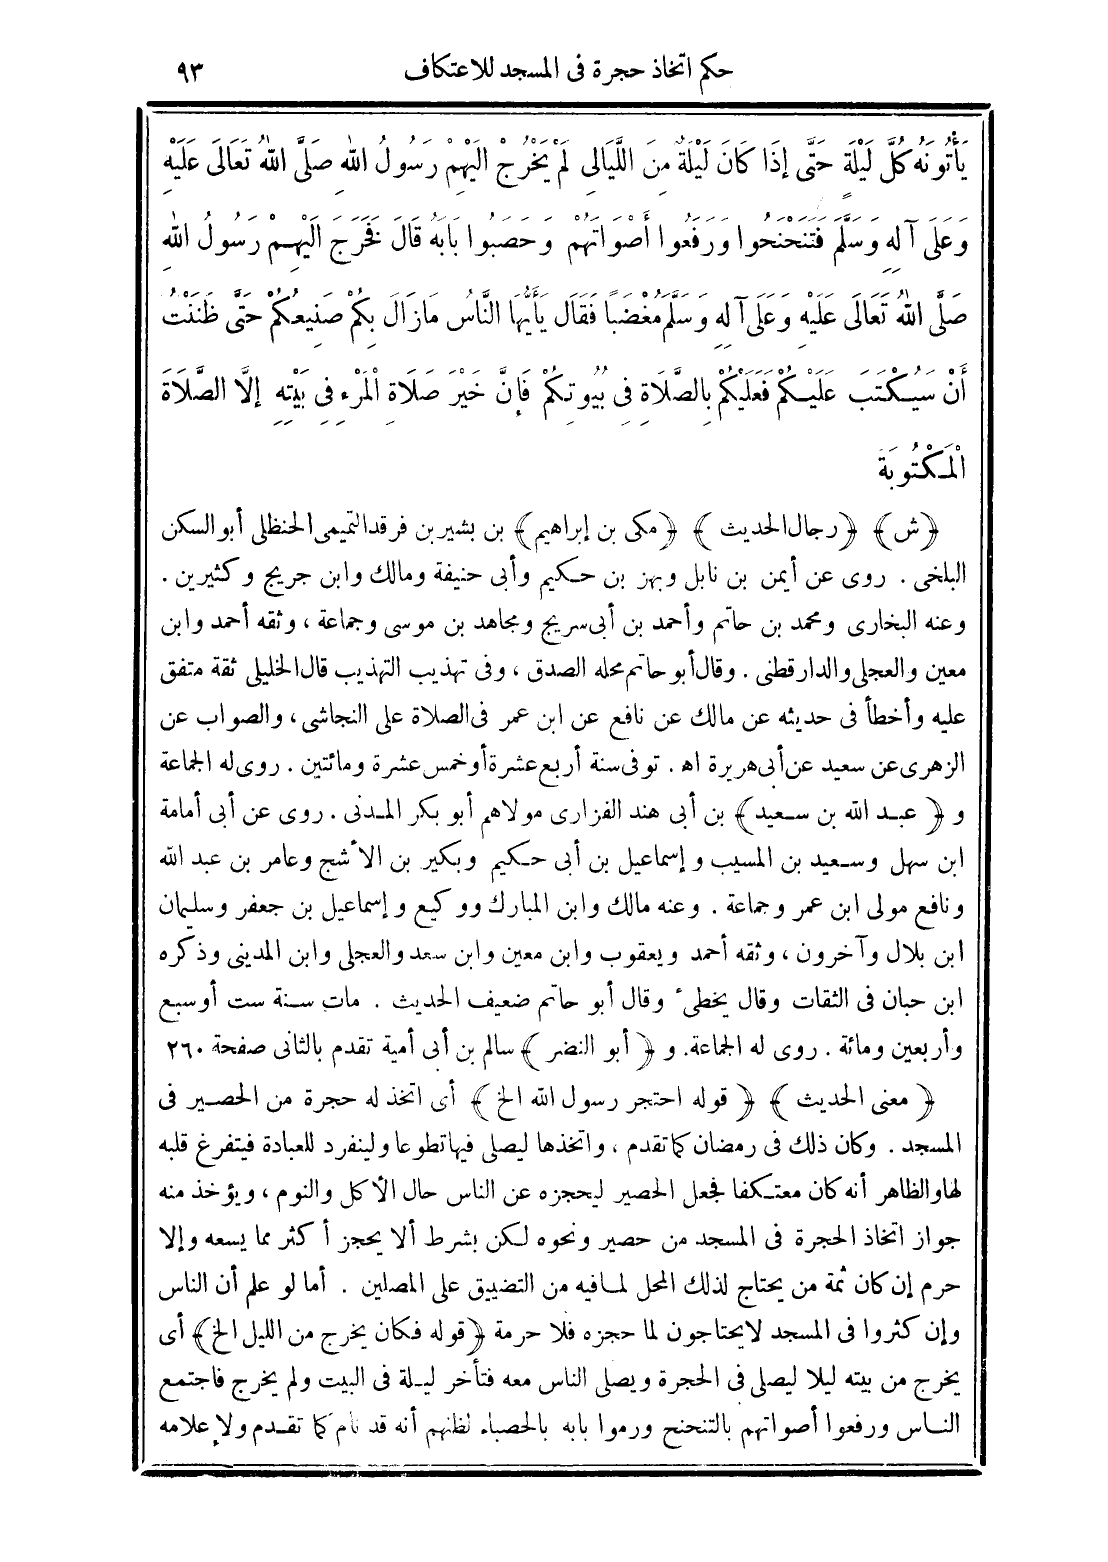 حكم اتخاذ حجرة فى المسجد للاعتكاف ٩٣
يَأْتُونَهُ كُلَّ لَيْلَةٍ حَتَّى إِذَا كَانَ لَيْلَةٌ مِنَ اللَّيَالِى لَمْ يَخْرُجْ إِلَيْهِمْ رَسُولُ اللهِ صَلَّى اللهُ تَعَالَى عَلَيْهِ
وَعَلَى آلِهِ وَسَلَّمَ فَتَنَحْنَحُوا وَرَفَعُوا أَصْوَاتَهُمْ وَحَصَبُوا بَابَهُ قَالَ فَخَرَجَ إِلَيْهِمْ رَسُولُ اللهِ
صَلَّى اللهُ تَعَالَى عَلَيْهِ وَعَلَى آلِهِ وَسَلَّمَ مُغْضَبًا فَقَالَ يَأَيُّهَا النَّاسُ مَازَالَ بِكُمْ صَنِيعُكُمْ حَتَّى ظَنَنْتُ
أَنْ سَيُكْتَبَ عَلَيْكُمْ فَعَلَيْكُمْ بِالصَّلَاةِ فِى بُيُوتِكُمْ فَإِنَّ خَيْرَ صَلَاةِ الْمَرْءِ فِى بَيْتِهِ إِلَّا الصَّلَاةَ
الْمَكْتُوبَةَ
﴿ش﴾ ﴿رجال الحديث﴾ ﴿مكى بن إبراهيم﴾ بن بشير بن فرقد التميمى الحنظلى أبو السكن
البلخى . روى عن أيمن بن نابل وبهز بن حكيم وأبى حنيفة ومالك وابن جريج وكثيرين .
وعنه البخارى ومحمد بن حاتم وأحمد بن أبى سريج ومجاهد بن موسى وجماعة ، وثقه أحمد وابن
معين والعجلى والدارقطنى . وقال أبو حاتم محله الصدق ، وفى تهذيب التهذيب قال الخليلى ثقة متفق
عليه وأخطأ فى حديثه عن مالك عن نافع عن ابن عمر فى الصلاة على النجاشى ، والصواب عن
الزهرى عن سعيد عن أبى هريرة اه . توفى سنة أربع عشرة أو خمس عشرة ومائتين . روى له الجماعة
و ﴿عبد الله بن سعيد﴾ بن أبى هند الفزارى مولاهم أبو بكر المدنى . روى عن أبى أمامة
ابن سهل وسعيد بن المسيب وإسماعيل بن أبى حكيم وبكير بن الأشج وعامر بن عبد الله
ونافع مولى ابن عمر وجماعة . وعنه مالك وابن المبارك ووكيع وإسماعيل بن جعفر وسليمان
ابن بلال وآخرون ، وثقه أحمد ويعقوب وابن معين وابن سعد والعجلى وابن المدينى وذكره
ابن حبان فى الثقات وقال يخطىء وقال أبو حاتم ضعيف الحديث . مات سنة ست أو سبع
وأربعين ومائة . روى له الجماعة. و ﴿أبو النضر﴾ سالم بن أبى أمية تقدم بالثانى صفحة ٢٦٠
﴿معنى الحديث﴾ ﴿قوله احتجر رسول الله الخ﴾ أى اتخذ له حجرة من الحصير فى
المسجد . وكان ذلك فى رمضان كما تقدم ، واتخذها ليصلى فيها تطوعا ولينفرد للعبادة فيتفرغ قلبه
لها والظاهر أنه كان معتكفا فجعل الحصير ليحجزه عن الناس حال الأكل والنوم ، ويؤخذ منه
جواز اتخاذ الحجرة فى المسجد من حصير ونحوه لكن بشرط ألا يحجز أكثر مما يسعه وإلا
حرم إن كان ثمة من يحتاج لذلك المحل لما فيه من التضييق على المصلين . أما لو علم أن الناس
وإن كثروا فى المسجد لا يحتاجون لما حجزه فلا حرمة ﴿قوله فكان يخرج من الليل الخ﴾ أى
يخرج من بيته ليلا ليصلى فى الحجرة ويصلى الناس معه فتأخر ليلة فى البيت ولم يخرج فاجتمع
الناس ورفعوا أصواتهم بالتنحنح ورموا بابه بالحصباء لظنهم أنه قد نام كما تقدم ولإعلامه